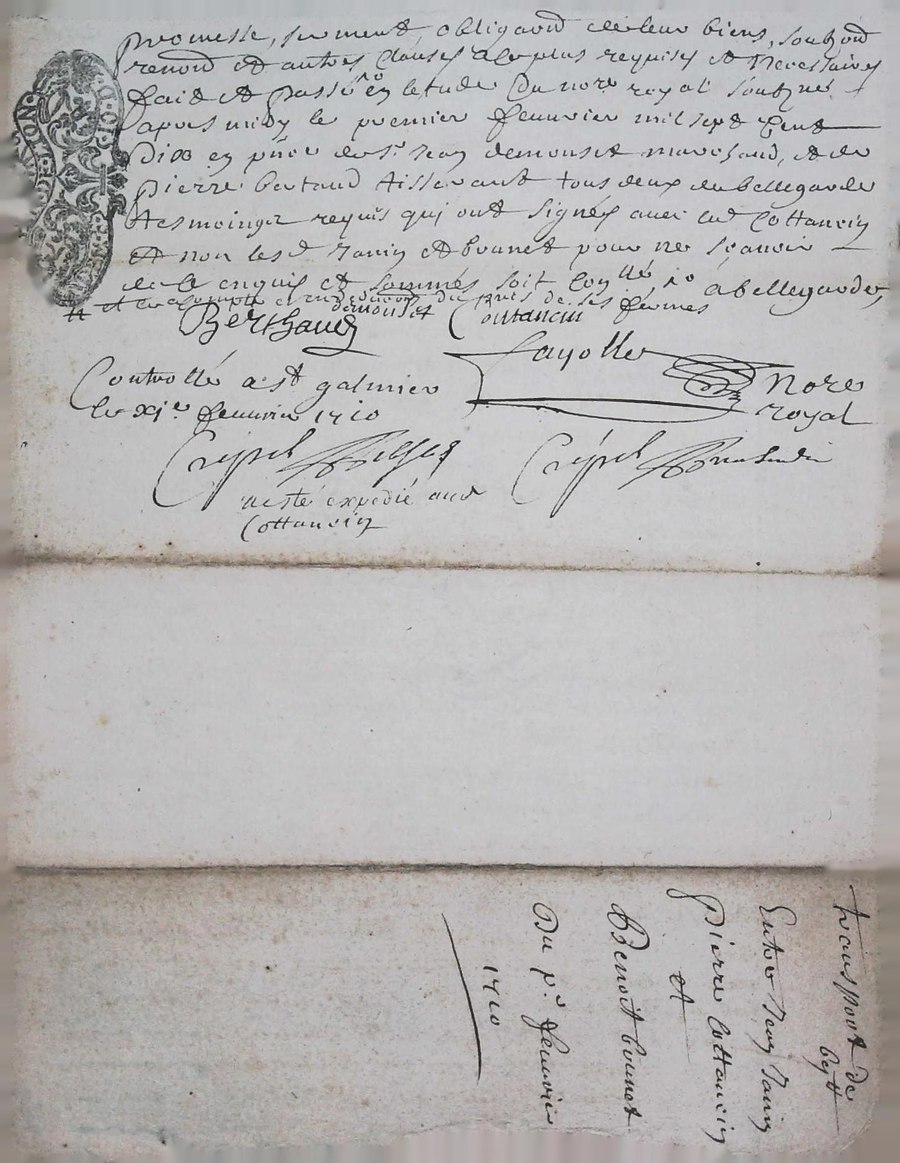 promesse, serment, obligaõn de leur biens, soubzõn
renonõn et autres clauses a ce plus requises et necessaires
fait et passé en letude du nore royal soubzne
apres midy le premier feuvrier mil sept cent
Dix en pñce de sr Jean demonset marchand, et de
pierre bertaud tisserand tous deux de bellegarde
tesmoingz requis qui ont signés avec led Cottancin
et non lesd Janin et bounet pour ne sçavoir
de ce enquis et sommés soit a bellegarde,
du de ses fermes
Berthaud demonset Coutancin
fayolle
Nore
royal
Controllé a st galmier
le xje feuvrier 1710
Crépel Crépet
a esté expedié aud
Cottancin
transport de
Entre Jean Janin
pierre Cottancin
et
Benoit bounet
Du pr feuvrier
1710